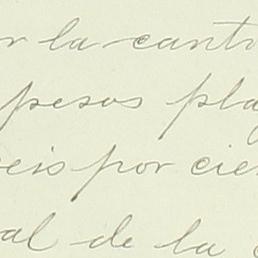 r la canti
pesos pla
seis por cien
al de la